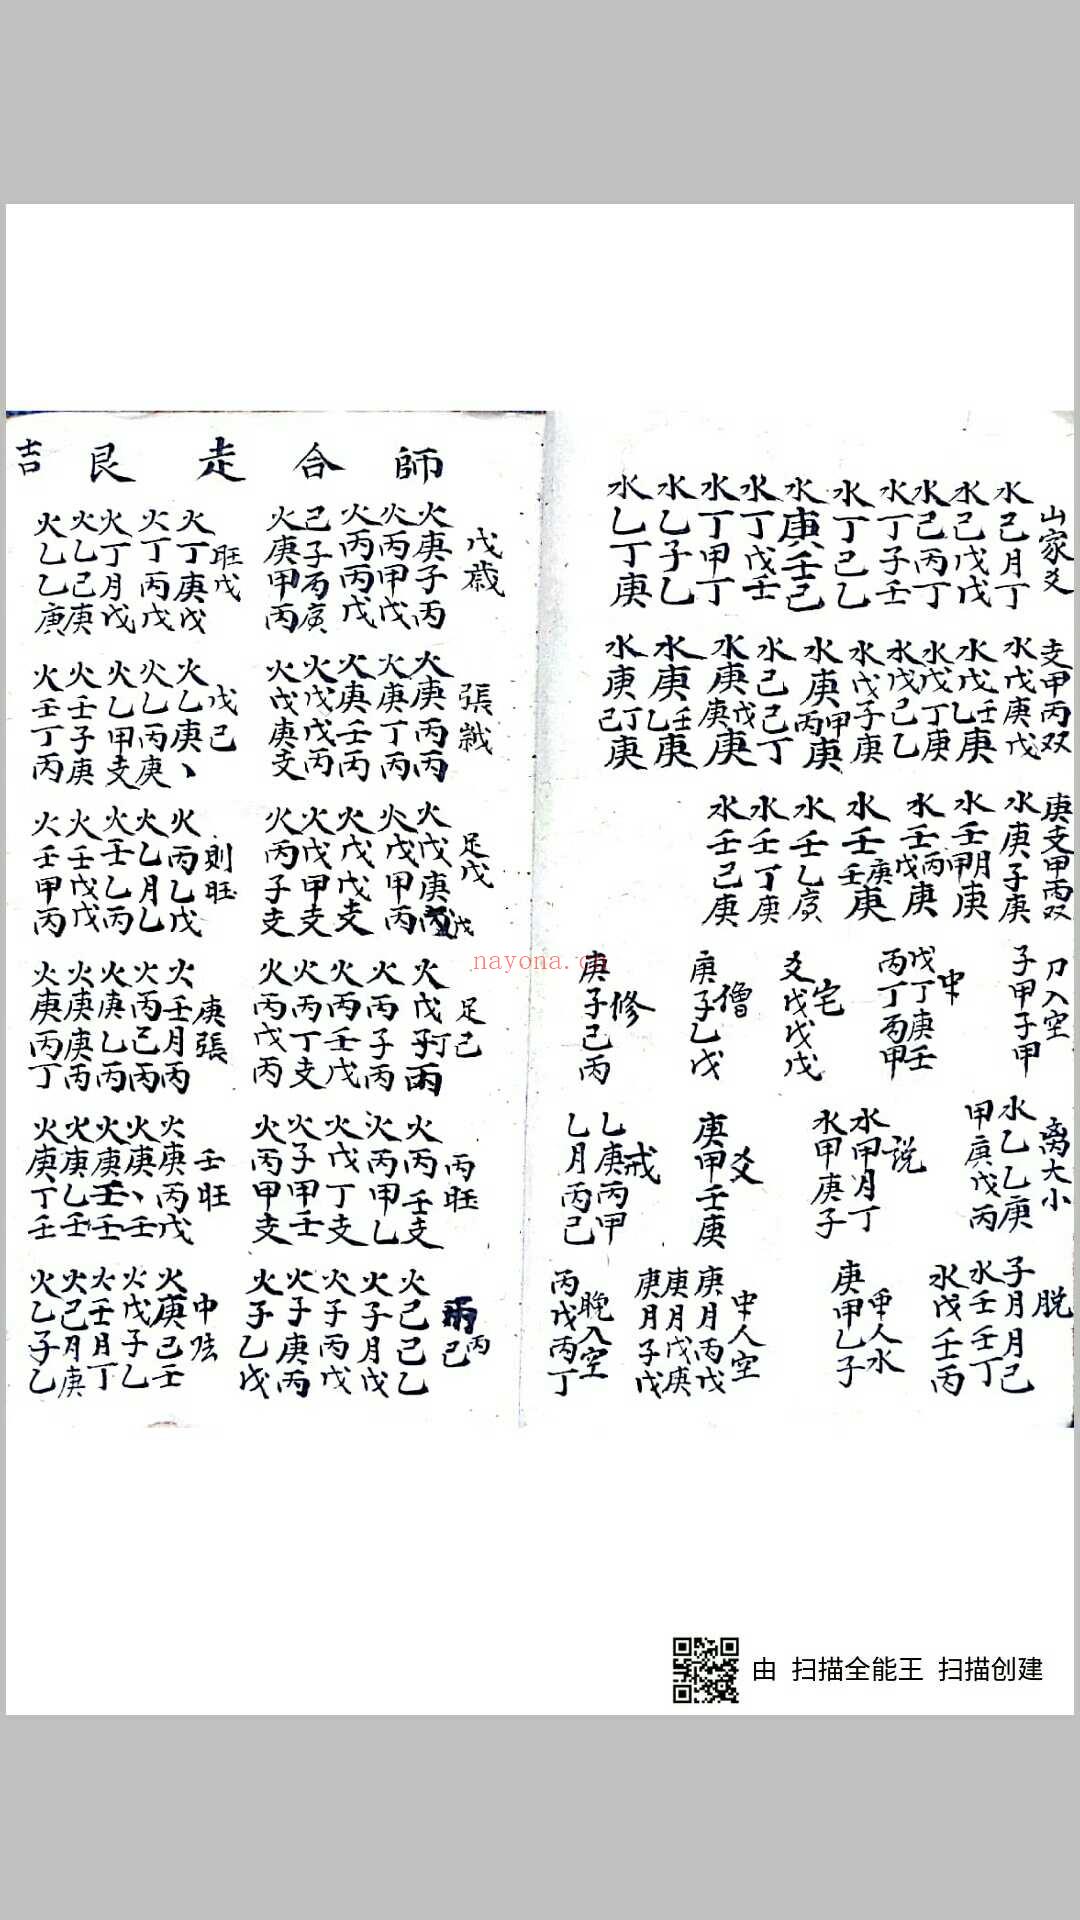 山家爻
水己月丁
水己戊戊
水己丙丁
水丁子壬
水丁己乙
水庚壬己
水丁戊壬
水丁甲丁
水乙子乙
水乙丁庚
支甲丙双
水戊庚戊
水戊乙壬庚
水戊丁庚
水戊己乙
水戊子庚
水庚丙甲庚
水己己丁
水庚庚戊庚
水庚乙壬庚
水庚己丁庚
庚支甲丙双
水庚子庚
水壬甲月庚
水壬戊丙庚
水壬壬庚庚
水壬乙庚
水壬丁庚
水壬己庚
刀入空
子甲子甲
中
戊丁庚壬
丙丁丙甲
宅
爻戊戊戊
僧
庚子乙戊
修
庚子己丙
离大小
水乙乙庚
甲庚戊丙
说
水甲月丁
水甲庚子
爻
庚甲壬庚
戒
乙庚丙甲
乙月丙己
脱
子月月己
水壬壬丁
水戊壬丙
中人水
庚甲乙子
中人空
庚月丙戊
庚月戊庚
庚月子戊
晚入空
丙戊丙丁
師 合 走 艮 吉
戊歲
火庚子丙
火丙甲戊
火丙丙戊
己子丙庚
火庚甲丙
旺戊
火丁庚戊
火丁丙戊
火丁月戊
火乙己庚
火乙乙庚
張
火庚丙丙
火庚丁丙
火庚壬丙
火戊戊丙
火戊庚支
戊己
火乙庚、
火乙丙庚
火乙甲支
火壬子庚
火壬丁丙
足戊
火戊庚戊
火戊甲丙
火戊戊支
火戊甲支
火丙子支
则旺
火丙乙戊
火乙月乙
火壬乙丙
火壬戊戊
火壬甲丙
足己
火戊子丁丙
火丙子丙
火丙壬戊
火丙丁支
火丙戊丙
庚張
火壬月丙
火丙己丙
火庚乙丙
火庚庚丙
火庚丙丁
丙旺
火丙壬支
火丙甲乙
火戊丁支
火子甲壬
火丙甲支
壬旺
火庚丙戊
火庚、壬
火庚壬壬
火庚乙壬
火庚丁壬
丙己
火己己乙
火子月戊
火子丙戊
火子庚丙
火子乙戊
中
火庚己壬
火戊子乙
火壬月丁
火己月庚
火乙子乙
nayona.cn
由 扫描全能王 扫描创建